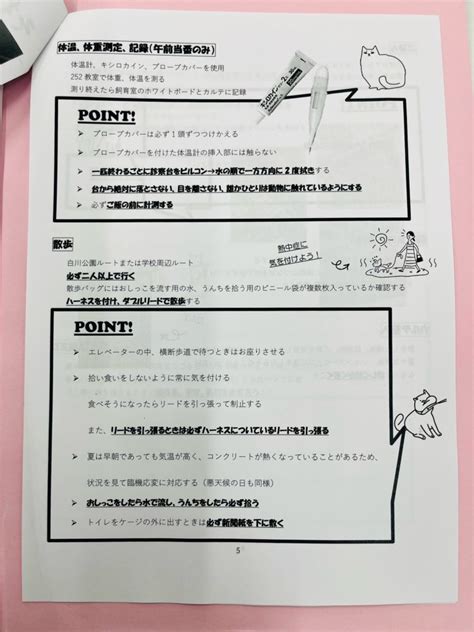 体温、体重測定、記録(午前当番のみ)
体温計、キシロカイン、プローブカバーを使用
252 教室で体重、体温を測る
測り終えたら飼育室のホワイトボードとカルテに記録
POINT!
➢ プローブカバーは必ず1頭ずつつけかえる
➢ プローブカバーを付けた体温計の挿入部には触らない
➢ 一匹終わるごとに診察台をビルコン→水の順で一方方向に2度拭きする
➢ 台から絶対に落とさない、目を離さない、誰かひとりは動物に触れているようにする
➢ 必ずご飯の前に計測する
散歩
熱中症に
気を付けよう!
白川公園ルートまたは学校周辺ルート
必ず二人以上で行く
散歩バッグにはおしっこを流す用の水、うんちを拾う用のビニール袋が複数枚入っているか確認する
ハーネスを付け、ダブルリードで散歩する
POINT!
➢ エレベーターの中、横断歩道で待つときはお座りさせる
➢ 拾い食いをしないように常に気を付ける
食べそうになったらリードを引っ張って制止する
また、リードを引っ張るときは必ずハーネスについているリードを引っ張る
➢ 夏は早朝であっても気温が高く、コンクリートが熱くなっていることがあるため、
状況を見て臨機応変に対応する(悪天候の日も同様)
➢ おしっこをしたら水で流し、うんちをしたら必ず拾う
➢ トイレをケージの外に出すときは必ず新聞紙を下に敷く
5